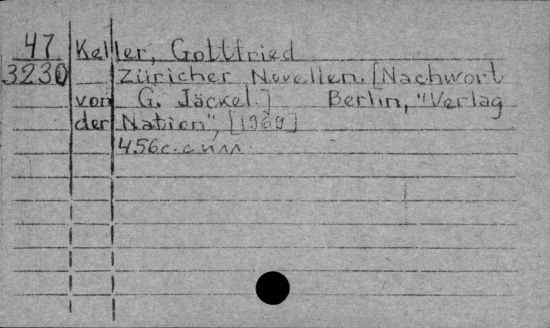 47 Keller, Gottfried
3230 Züricher Novellen. [Nachwort
von G. Jäckel.] Berlin, "Verlag
der Nation", [1969]
456c. с илл.